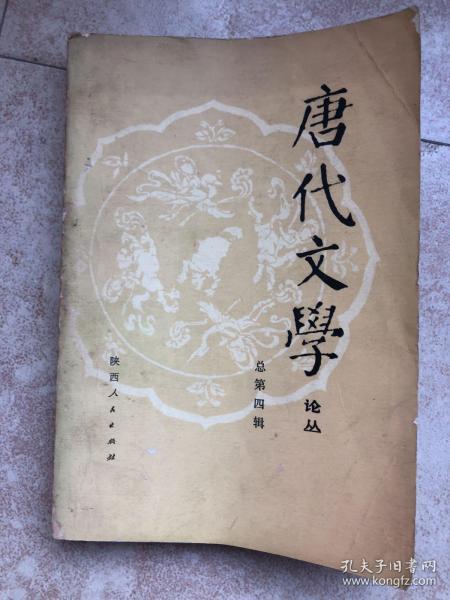 唐代文學
论丛
总第四辑
陕西人民出版社
孔夫子旧书网
www.kongfz.com